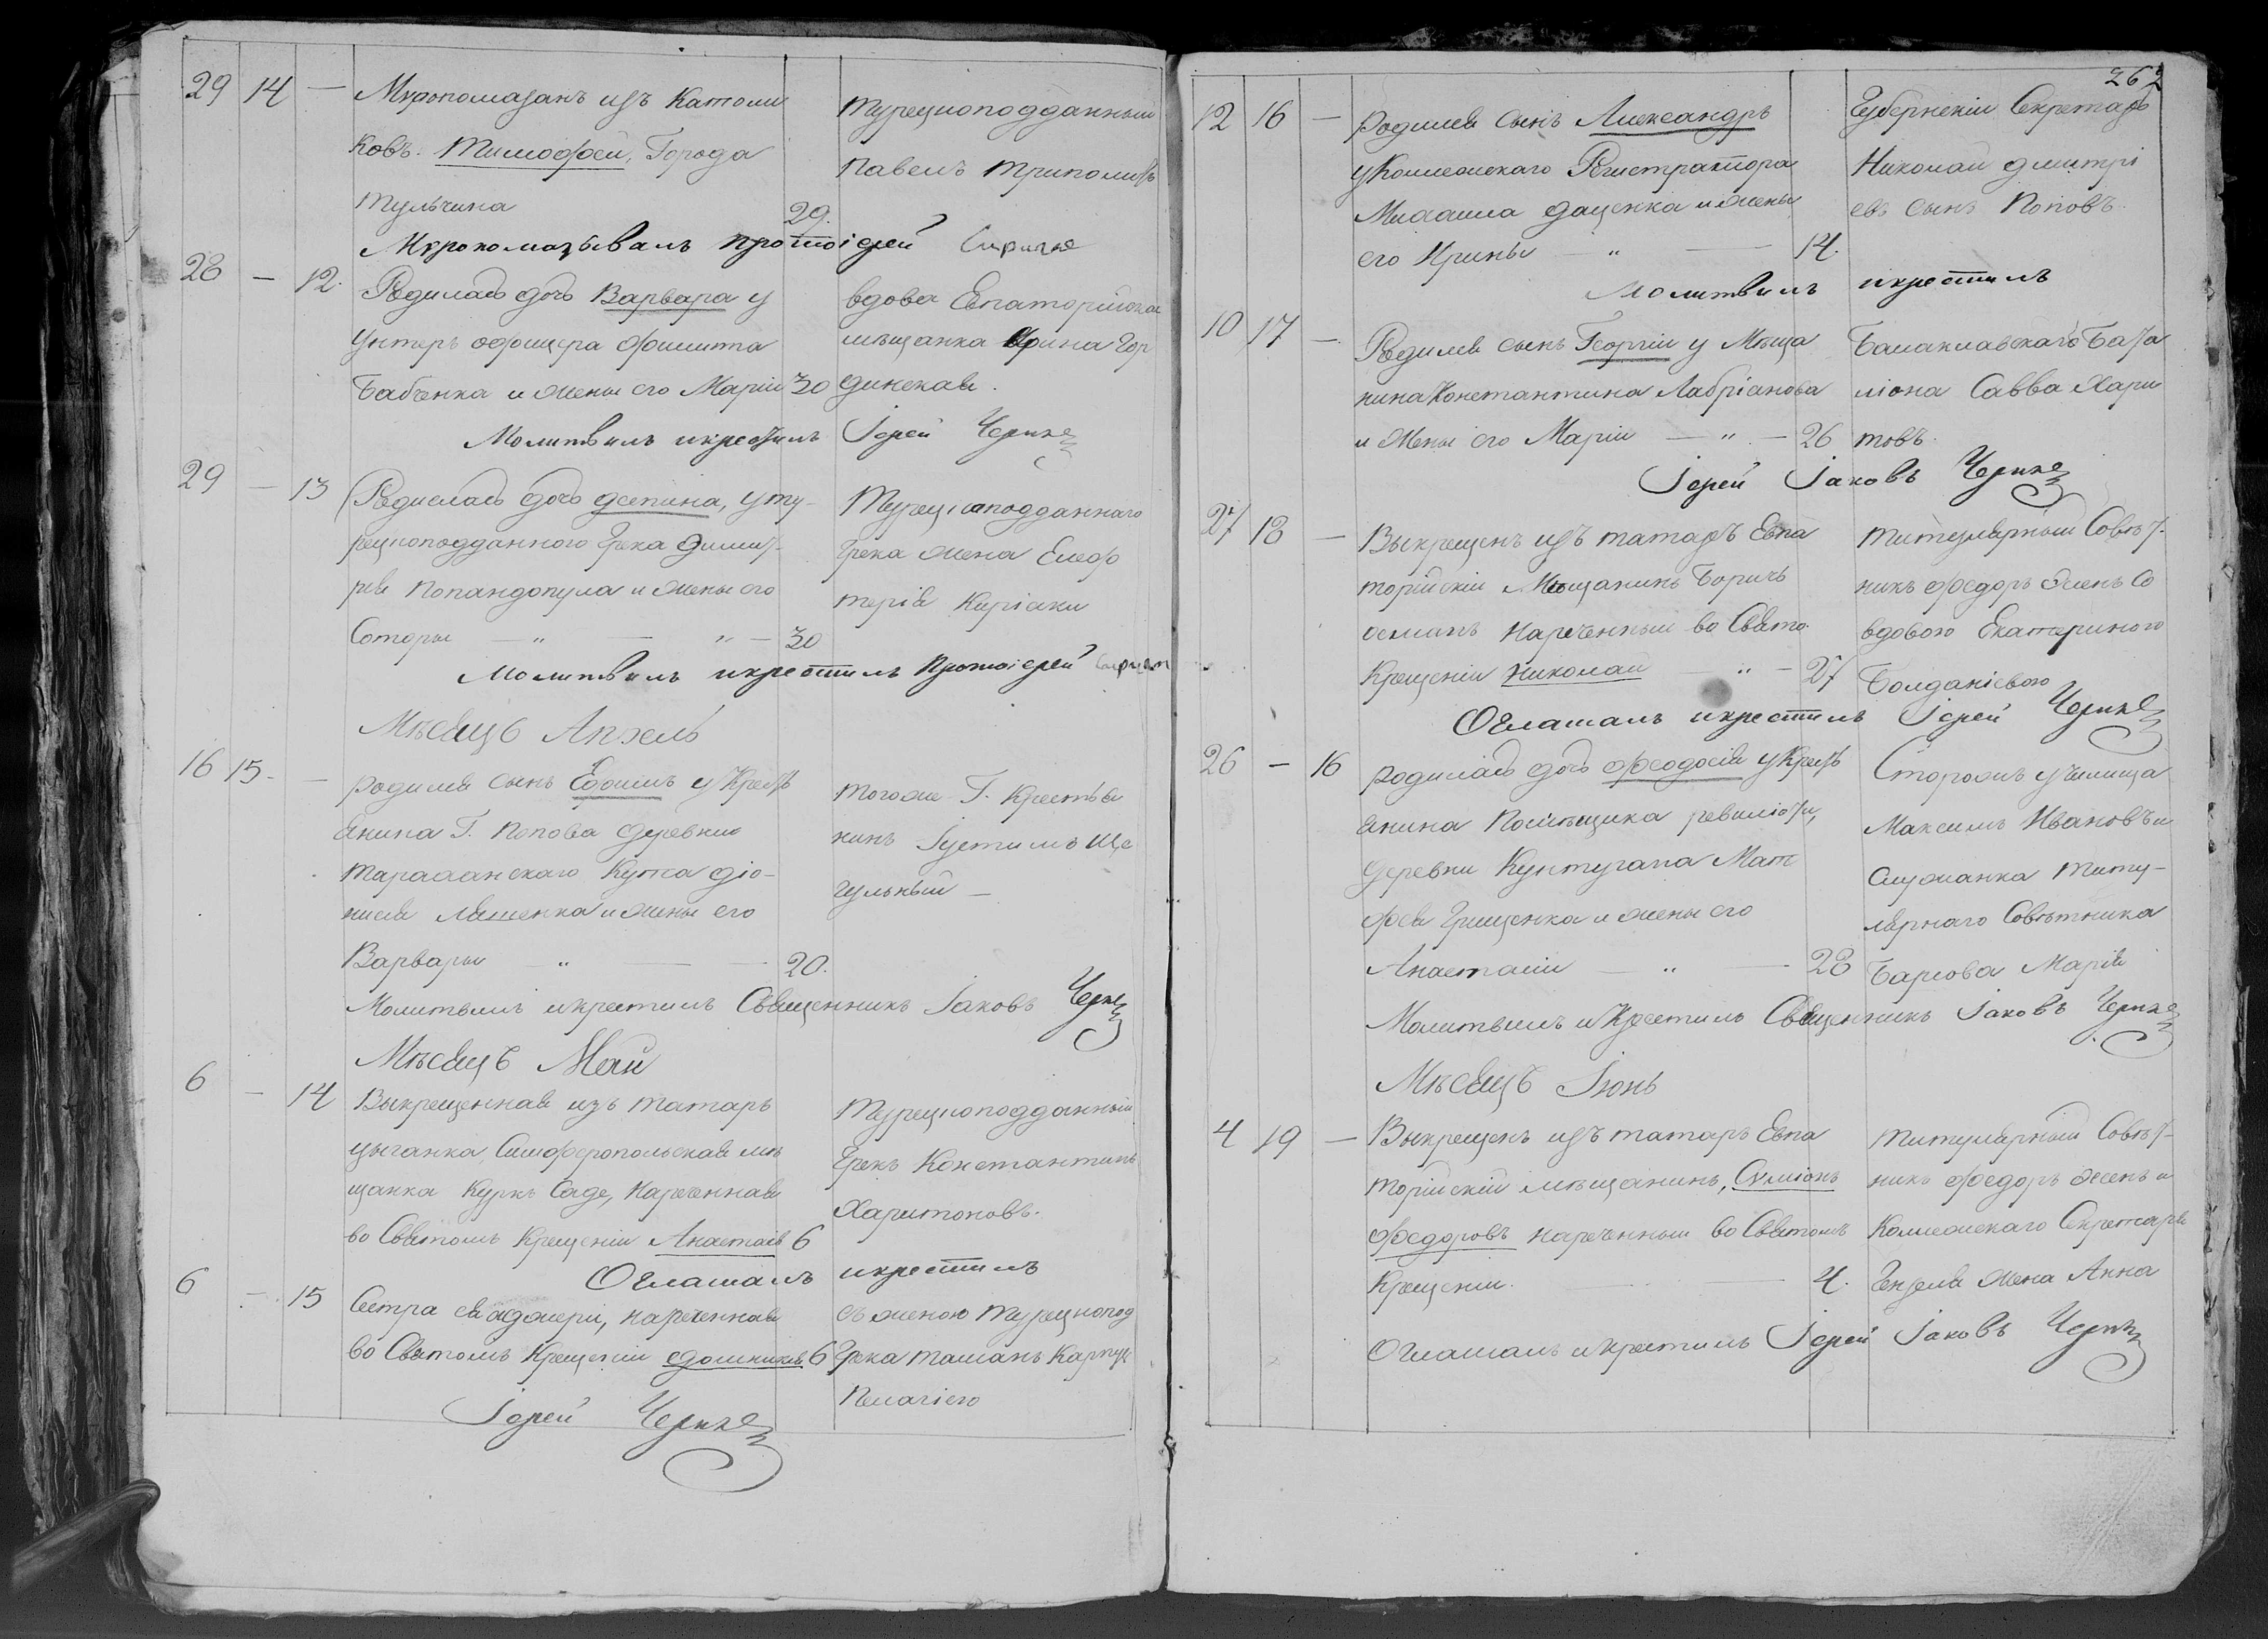 29 14 — Мѵропомазанъ изъ Католи
ковъ. Тимофей, Города
Тульчина 29.
Турецкоподданный
Павелъ
Мѵропомазывалъ Протоіерей
28 — 12. Родилась дочь Варвара у
Унтеръ офицера Филипа
Бабченка и жены его Маріи 30
вдова Евпаторійская
мѣщанка Ирина Гор
динская.
Молитвилъ икрестилъ Іерей
29 — 13 Родилась дочь Деспина, у ту-
рецкоподданного Грека Димит-
рія Попандопула и жены его
Соторы — „ — „ — 30
Турецкоподданнаго
Грека жена Елеф
терія Киріаки
Молитвилъ икрестилъ Протоіерей
Мѣсяцъ Апрель
16 15. — родился сынъ Ефимъ у Крестъ
янина Г. Попова деревни
Тарханскаго Кута Діо-
нисія Ляшенка и жены его
Варвары — „ — 20.
того же Г. Крестья
нинъ Іустимъ Ще
гульный —
Молитвилъ икрестилъ Священникъ Іаковъ
Мѣсяцъ Май
6 — 14 Выкрещенная изъ татаръ
цыганка, Симферопольская мѣ
щанка Куркъ Саде, Нареченная
во Святомъ Крещеніи Анастасія 6
Турецкоподданный
Грекъ Константинъ
Харитоновъ.
Оглашалъ икрестилъ
6 — 15 Сестра ея нареченная
во Святомъ Крещеніи Домникія 6
съ женою Турецкопод
Грека
Пелагіею
Іерей
262
12 16 — родился сынъ Александръ
у Коллежскаго Регистратора
Михаила Даценка и жены
его Ирины — „ — 14.
Губернскій Секретарь
Николай Дмитрі
евъ сынъ Поповъ.
Молитвилъ икрестилъ
10 17 — Родился сынъ Георгій у Мѣща
нина Константина Лабріанова
и Жены его Маріи — „ — 26
Балаклавскаго Бата
ліона Савва Хари
товъ.
Іерей Іаковъ
27 18 — Выкрещенъ изъ татаръ Евпа
торійскій Мѣщанинъ Боричъ
османъ нареченный во Свято.
Крещеніи Николай — „ — 27
Титулярный Совѣт-
никъ Федоръ Эсенъ Со
вдовою Екатериною
Болданіевою
Оглашалъ икрестилъ Іерей
26 — 16 родилась дочь Феодосія у Крестъ
янина Помѣщика
деревни Кунтугана Мат
фея Грищенка и жены его
Анастасіи — „ — 28
Сторожъ училища
Максимъ Ивановъ и
служанка Титу-
лярнаго Совѣтника
Барсова Марія
Молитвилъ и Крестилъ Священникъ Іаковъ
Мѣсяцъ Іюнь
4 19 — Выкрещенъ изъ татаръ Евпа
торійскій мѣщанинъ, Сѵміонъ
Федоровъ нареченный во Святомъ
Крещеніи. — 4.
Титулярный Совѣт-
никъ Федоръ Эсенъ и
Коллежскаго Секретаря
Гензеля жена Анна
Оглашалъ икрестилъ Іерей Іаковъ